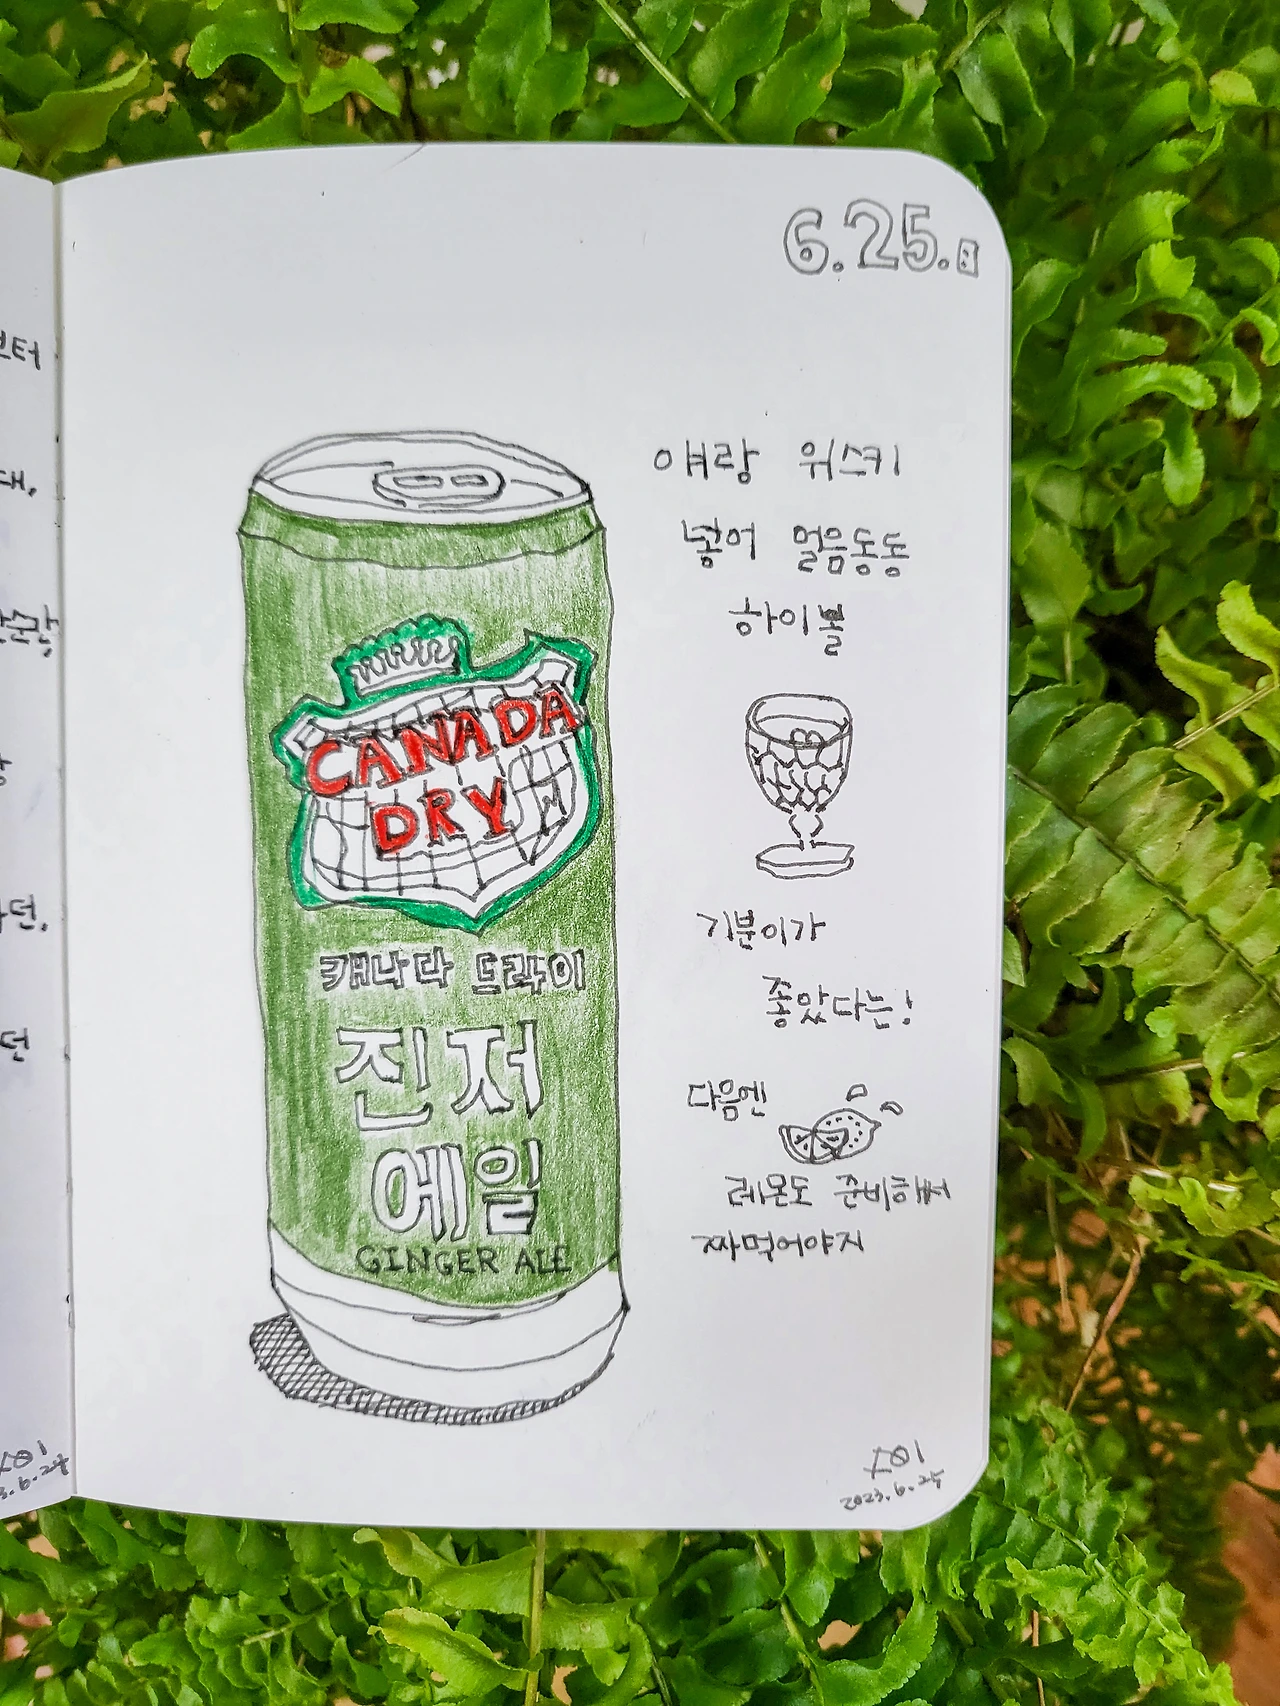 6.25.日
얘랑 위스키
넣어 얼음동동
하이볼
CANADA
DRY
캐나다 드라이
진저
에일
GINGER ALE
기분이가
좋았다는!
다음엔
레몬도 준비해서
짜먹어야지
2023.6.25
대,
던,
던